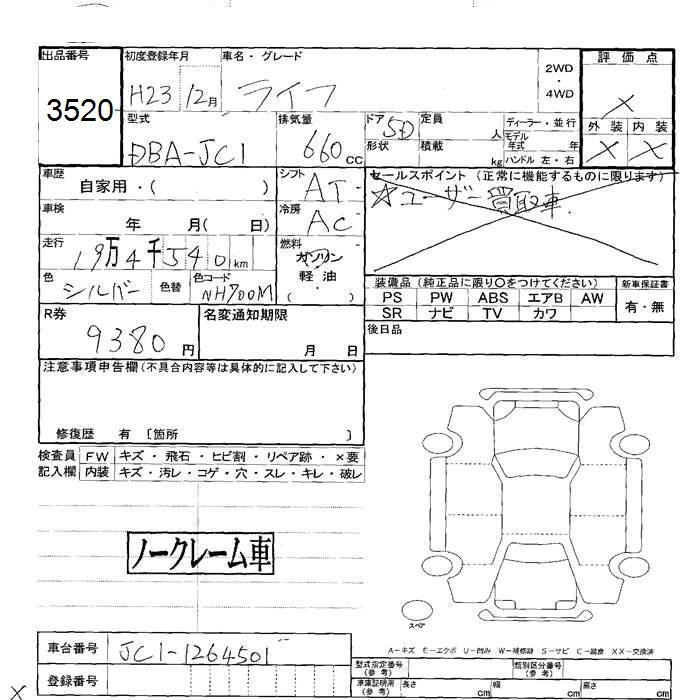 出品番号
3520
初度登録年月
H23 12月
車名・グレード
ライフ
2WD
・
4WD
評価点
X
外装 内装
X X
型式
DBA-JC1
排気量
660 cc
ドア 5D
形状
定員 人
積載 kg
ディーラー・並行
モデル
年式 年
ハンドル 左・右
車歴
自家用・( )
シフト
AT
セールスポイント (正常に機能するものに限ります)
☆ユーザー買取車.
車検
年 月( 日)
冷房
AC
走行
19万4千540km
燃料
ガソリン
軽油
・
( )
色
シルバー
色替
色コード
NH700M
装備品 (純正品に限り〇をつけてください)
新車保証書
PS PW ABS エアB AW
SR ナビ TV カワ
有・無
後日品
R券
9380 円
名変通知期限
月 日
注意事項申告欄 (不具合内容等は具体的に記入して下さい)
修復歴 有 〔箇所 〕
検査員 FW キズ・飛石・ヒビ割・リペア跡・×要
記入欄 内装 キズ・汚レ・コゲ・穴・スレ・キレ・破レ
ノークレーム車
スペア
A-キズ E-エクボ U-凹み W-補修跡 S-サビ C-腐食 XX-交換済
車台番号
JC1-1264501
登録番号
型式指定番号
(参考)
類別区分番号
(参考)
車庫証明用
(参考)
長さ cm 幅 cm 高さ cm
X